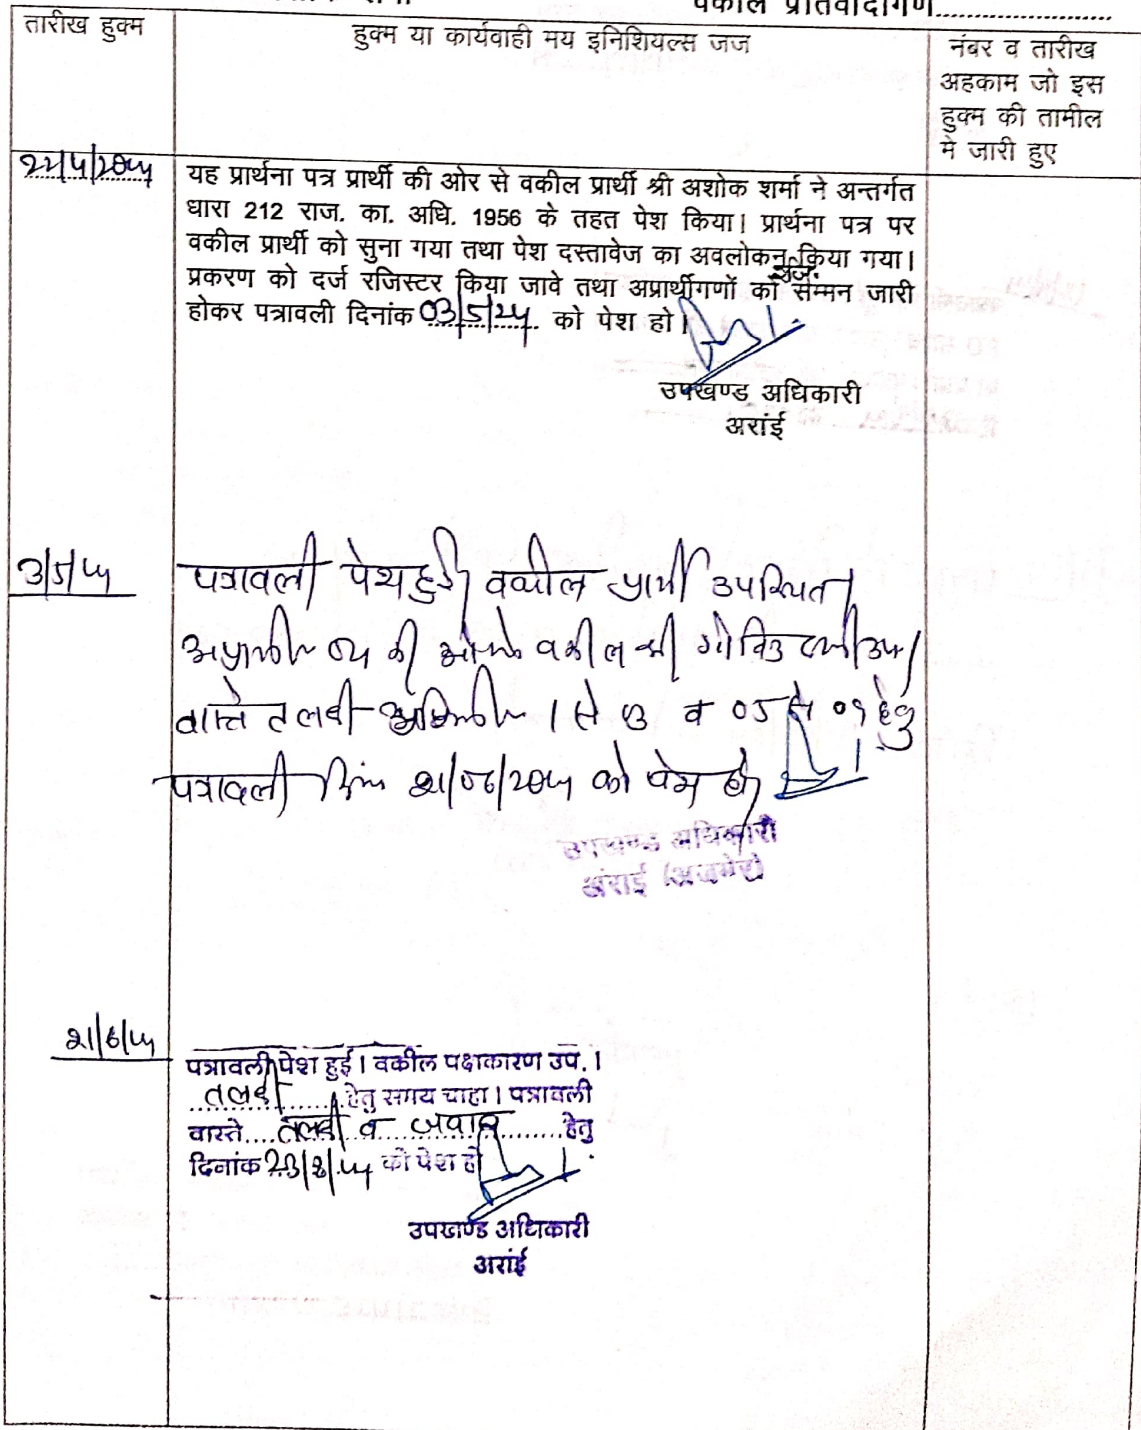 वकील प्रतिवादीगण
तारीख हुक्म
हुक्म या कार्यवाही मय इनिशियल्स जज
नंबर व तारीख
अहकाम जो इस
हुक्म की तामील
मे जारी हुए
यह प्रार्थना पत्र प्रार्थी की ओर से वकील प्रार्थी श्री अशोक शर्मा ने अन्तर्गत
धारा 212 राज. का. अधि. 1956 के तहत पेश किया। प्रार्थना पत्र पर
वकील प्रार्थी को सुना गया तथा पेश दस्तावेज का अवलोकन किया गया।
प्रकरण को दर्ज रजिस्टर किया जावे तथा अप्रार्थीगणों को सम्मन जारी
होकर पत्रावली दिनांक 03/5/24 को पेश हो।
उपखण्ड अधिकारी
अरांई
पत्रावली पेश हुई वकील प्रार्थी उपस्थित
की ओर से वकील श्री गोविन्द
वास्ते तलबी 1 से 3 व 05 से 09 हेतु
पत्रावली को पेश हो
उपखण्ड अधिकारी
अंराई (अजमेर)
पत्रावली पेश हुई। वकील पक्षकारण उप. ।
तलबी हेतु समय चाहा। पत्रावली
वास्ते तलबी व जवाब हेतु
दिनांक 23/8/24 को पेश हो
उपखण्ड अधिकारी
अरांई